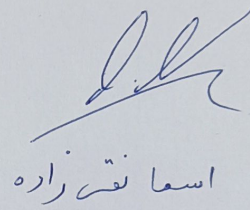 اسما نقی زاده